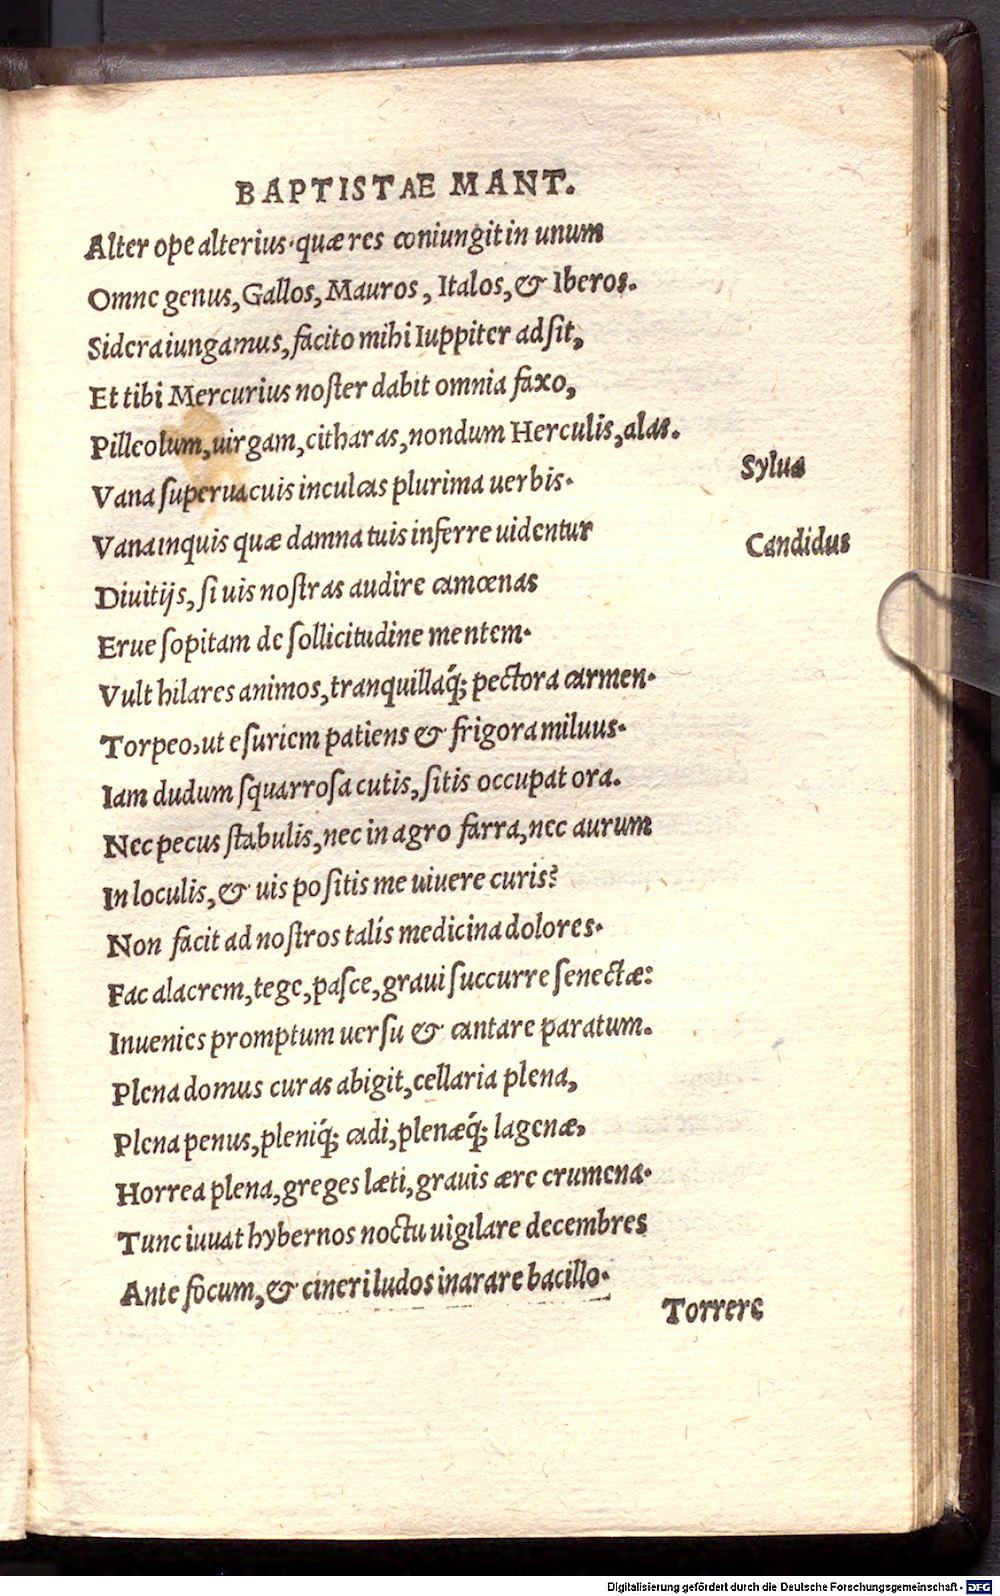 BAPTISTAE MANT.
Alter ope alterius·quæ res coniungit in unum
Omne genus, Gallos, Mauros, Italos, & Iberos.
Sidera iungamus, facito mihi Iuppiter adſit,
Et tibi Mercurius noſter dabit omnia faxo,
Pilleolum, uirgam, citharas, nondum Herculis, alas.
Vana ſuperuacuis inculcas plurima uerbis· Sylua
Vana inquis quæ damna tuis inferre uidentur Candidus
Diuitijs, ſi uis noſtras audire camœnas
Erue ſopitam de ſollicitudine mentem·
Vult hilares animos, tranquillaq́; pectora carmen·
Torpeo, ut eſuriem patiens & frigora miluus·
Iam dudum ſquarroſa cutis, ſitis occupat ora.
Nec pecus ſtabulis, nec in agro farra, nec aurum
In loculis, & uis poſitis me uiuere curis?
Non facit ad noſtros talis medicina dolores·
Fac alacrem, tege, paſce, graui ſuccurre ſenectæ:
Inuenies promptum uerſu & cantare paratum.
Plena domus curas abigit, cellaria plena,
Plena penus, pleniq́; cadi, plenæq́; lagenæ,
Horrea plena, greges læti, grauis ære crumena·
Tunc iuuat hybernos noctu uigilare decembres
Ante focum, & cineri ludos inarare bacillo·
Torrere
Digitalisierung gefördert durch die Deutsche Forschungsgemeinschaft - DFG